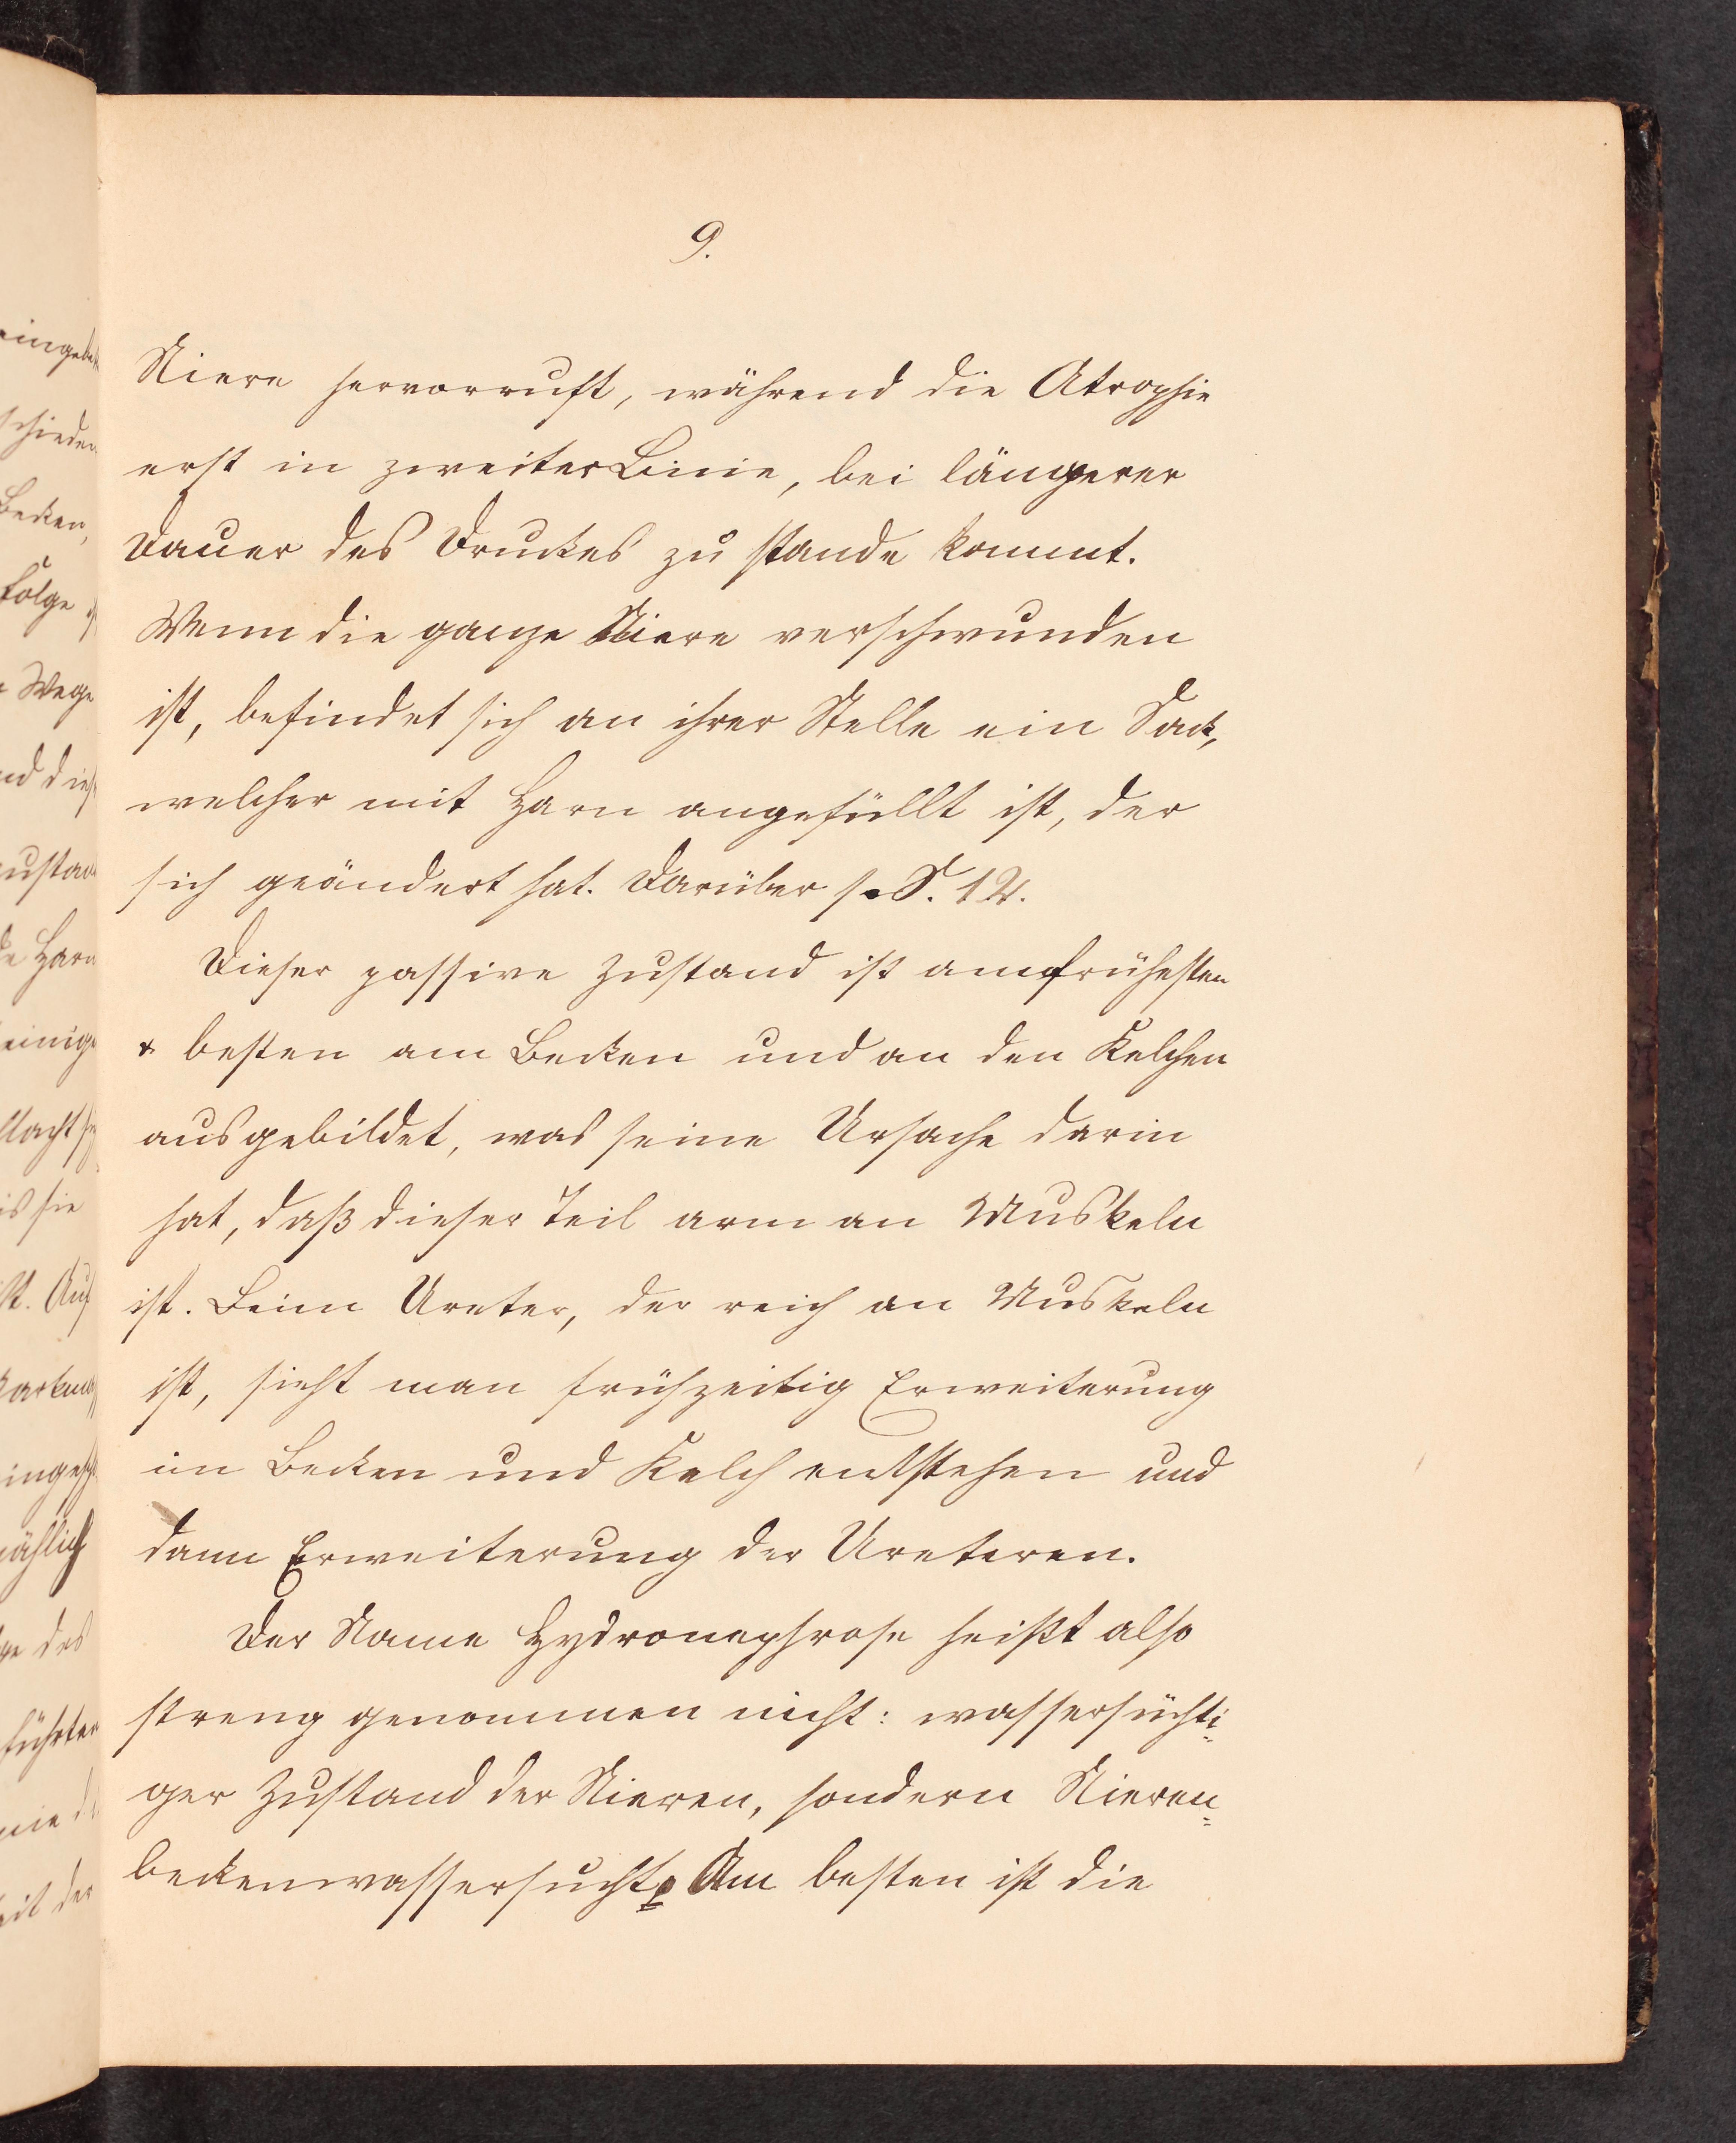 9.
Niere hervorruft, während die Atrophie
erst in zweiter Linie, bei längerer
Dauer des Druckes zu stande kommt.
Wenn die ganze Niere verschwunden
ist, befindet sich an ihrer Stelle ein Sack,
welcher mit Harn angefüllt ist, der
sich geändert hat. Darüber s. S. 12.
Dieser passive Zustand ist am frühesten
& besten am Becken und an den Kelchen
ausgebildet, was seine Ursache darin
hat, daß dieser Teil arm an Muskeln
ist. Beim Ureter, der reich an Muskeln
ist, sieht man frühzeitig Erweiterung
im Becken und Kelch entstehen und
dann Erweiterung der Ureteren.
Der Name Hydronephrose heißt also
streng genommen nicht: wassersüchti-
ger Zustand der Nieren, sondern Nieren-
beckenwassersucht. Am besten ist die